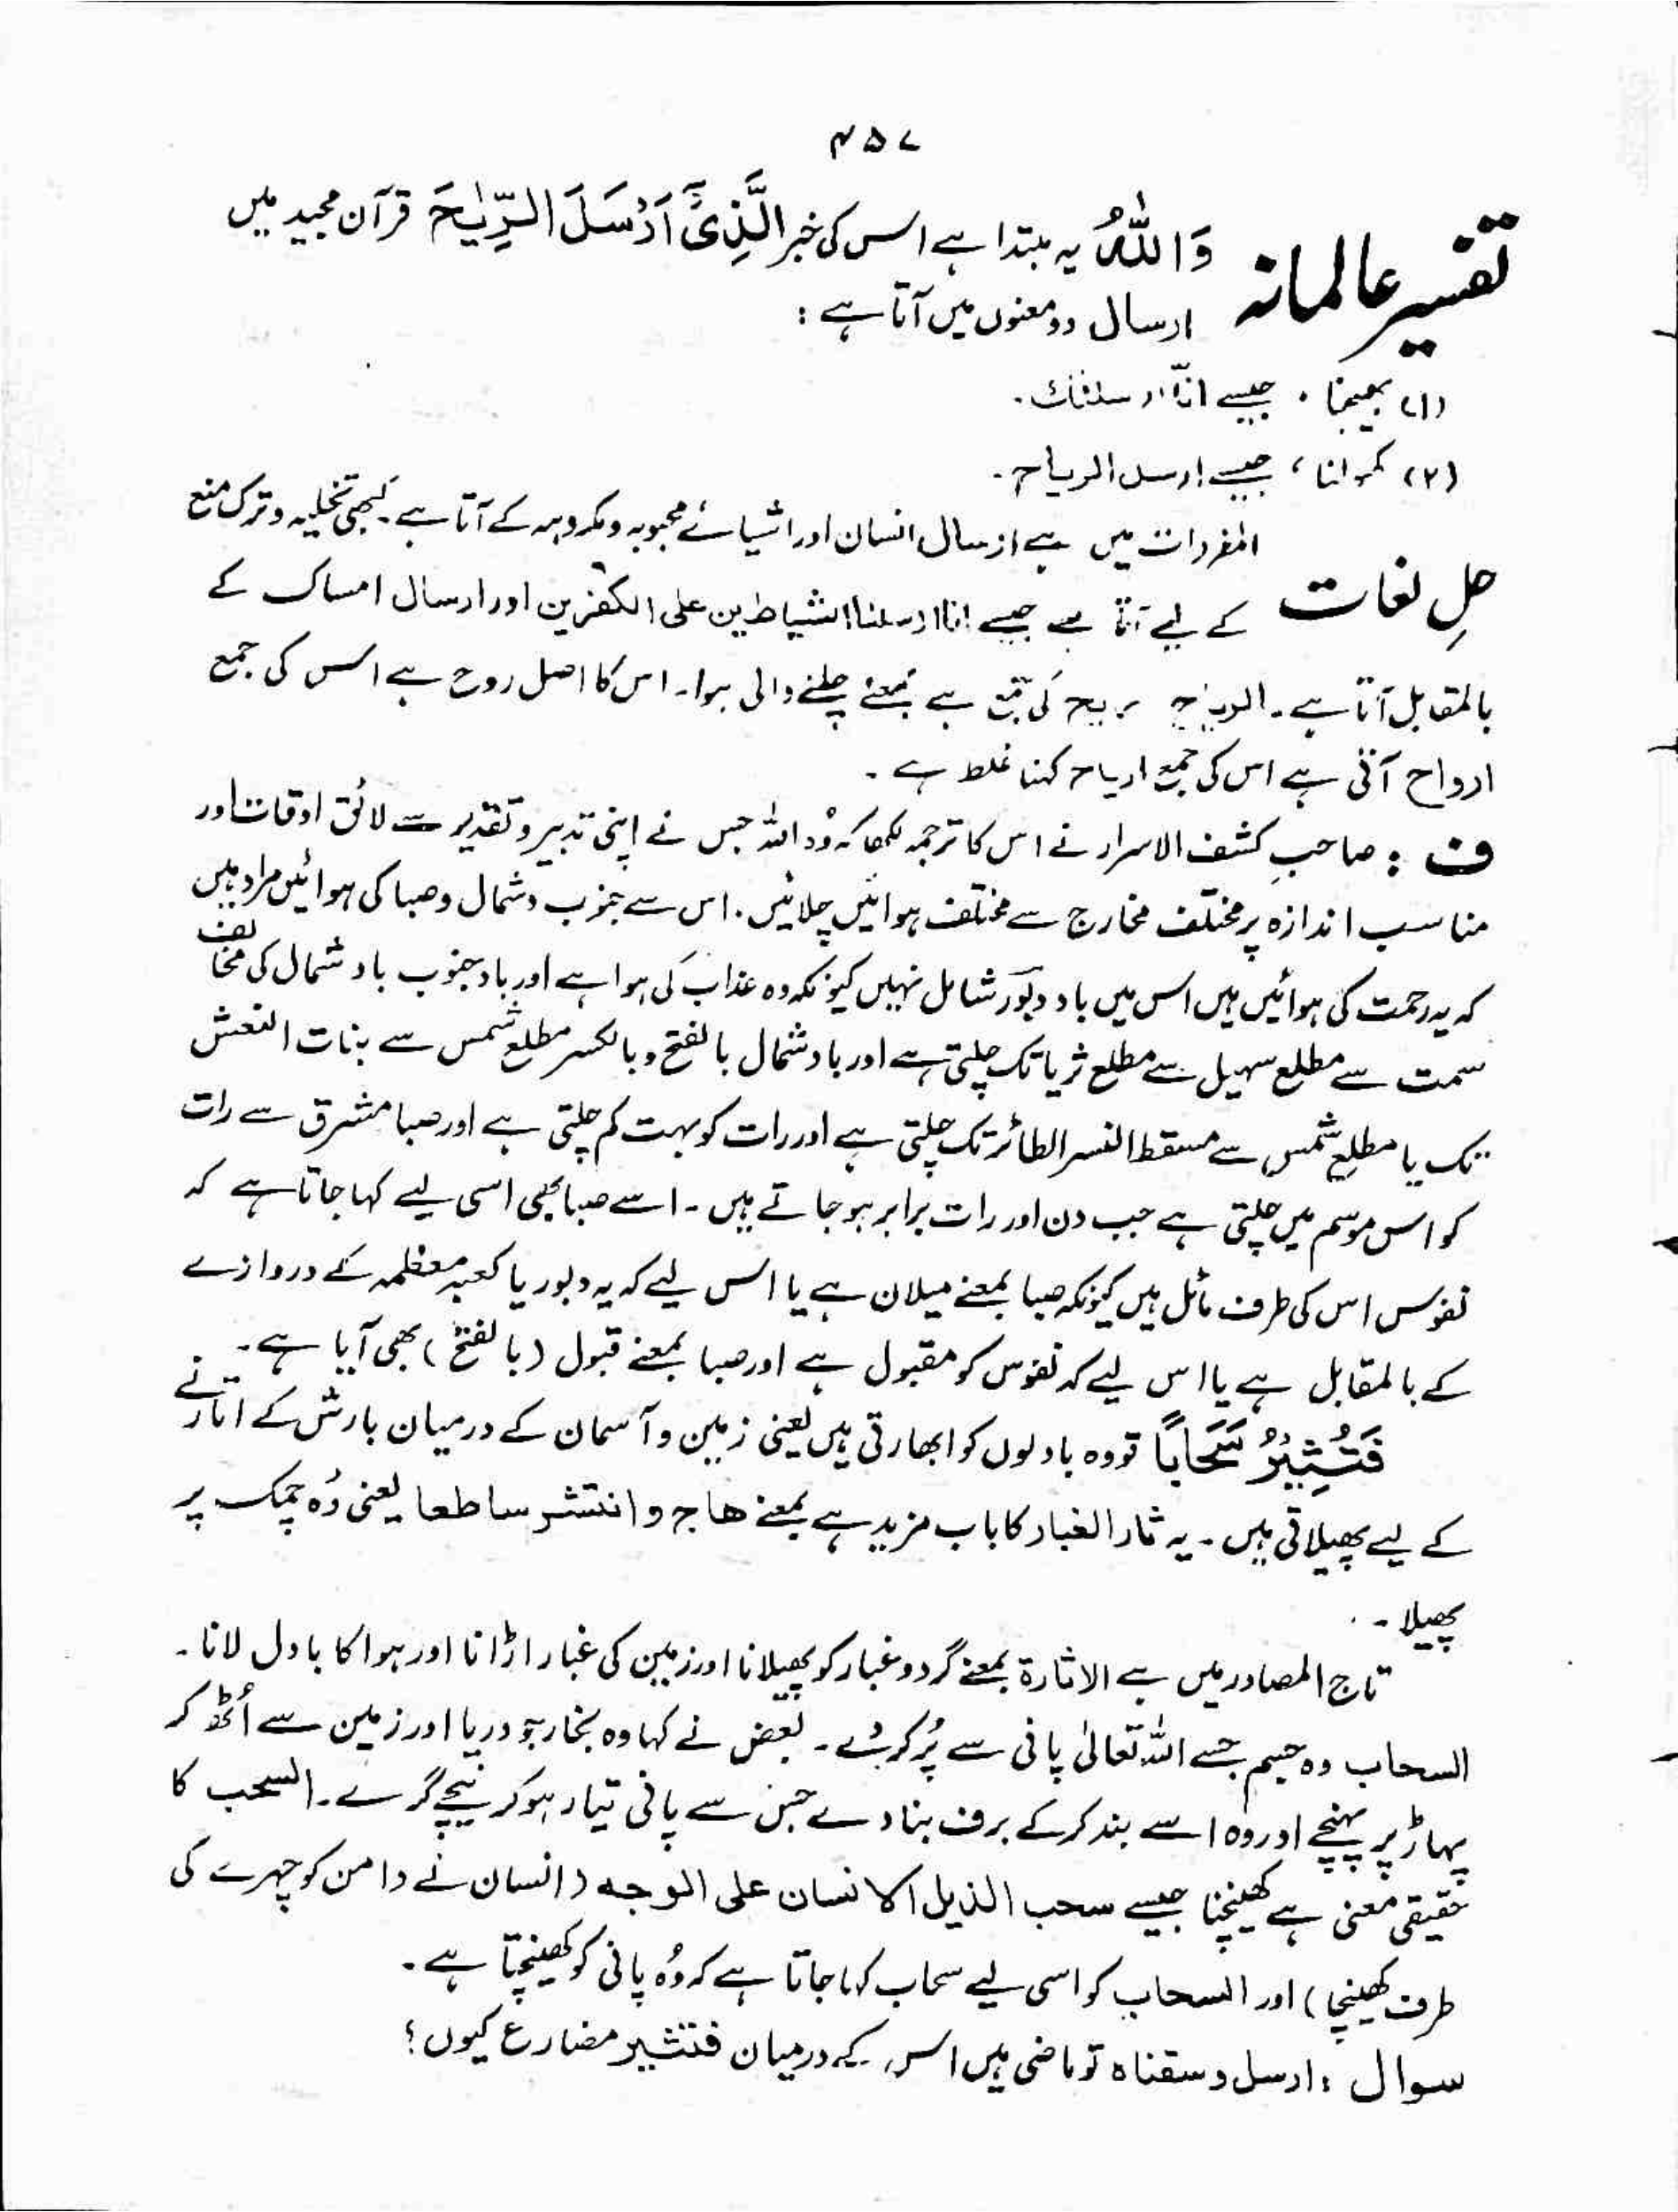 ۴۵۷
تفسیر عالمانہ وَاللّٰهُ یہ مبتدا ہے اس کی خبر الَّذِیْٓ اَرْسَلَ الرِّیٰحَ قرآن مجید میں
ارسال دو معنوں میں آتا ہے :
(۱) بھیجنا ، جیسے انّا ارسلناك ۔
(۲) کھولنا ، جیسے ارسل الرياح ۔
حلِ لغات المفردات میں ہے ارسال انسان اور اشیائے محبوبہ و مکروہہ کے آتا ہے ۔ کبھی تخلیہ و ترک منع
کے لیے آتا ہے جیسے انا ارسلنا الشیاطین علی الکٰفرین اور ارسال امساک کے
بالمقابل آتا ہے ۔ الریاح ریح کی جمع ہے بمعنے چلنے والی ہوا ۔ اس کا اصل روح ہے اس کی جمع
ارواح آتی ہے اس کی جمع ارياح کہنا غلط ہے ۔
ف : صاحبِ کشف الاسرار نے اس کا ترجمہ لکھا کہ وُہ اللہ جس نے اپنی تدبیر و تقدیر سے لائق اوقات اور
مناسب اندازہ پر مختلف مخارج سے مختلف ہوائیں چلائیں ۔ اس سے جنوب و شمال و صبا کی ہوائیں مراد ہیں
کہ یہ رحمت کی ہوائیں ہیں اس میں باد دبور شامل نہیں کیونکہ وہ عذاب کی ہوا ہے اور باد جنوب باد شمال کی مخالف
سمت سے مطلع سہیل سے مطلع ثریا تک چلتی ہے اور باد شمال بالفتح و بالکسر مطلع شمس سے بنات النعش
تک یا مطلع شمس سے مسقط النسر الطائر تک چلتی ہے اور رات کو بہت کم چلتی ہے اور صبا مشرق سے رات
کو اس موسم میں چلتی ہے جب دن اور رات برابر ہو جاتے ہیں ۔ اسے صبا بھی اسی لیے کہا جاتا ہے کہ
نفوس اس کی طرف مائل ہیں کیونکہ صبا بمعنے میلان ہے یا اس لیے کہ یہ دبور یا کعبہ معظمہ کے دروازے
کے بالمقابل ہے یا اس لیے کہ نفوس کو مقبول ہے اور صبا بمعنے قبول (بالفتح) بھی آیا ہے ۔
فَتُثِیْرُ سَحَابًا تو وہ بادلوں کو ابھارتی ہیں یعنی زمین و آسمان کے درمیان بارش کے اتارنے
کے لیے پھیلاتی ہیں ۔ یہ ثار الغبار کا باب مزید ہے بمعنے هاج و انتشر ساطعا یعنی وُہ چمک پر
پھیلا ۔
تاج المصادر میں ہے الاثارة بمعنے گرد و غبار کو پھیلانا اور زمین کی غبار اڑانا اور ہوا کا بادل لانا ۔
السحاب وہ جسم جسے اللہ تعالیٰ پانی سے پُر کر دے ۔ بعض نے کہا وہ بخار جو دریا اور زمین سے اُٹھ کر
پہاڑ پر پہنچے اور وہ اسے بند کر کے برف بنا دے جس سے پانی تیار ہو کر نیچے گرے ۔ السحب کا
حقیقی معنی ہے کھینچنا جیسے سحب الذيل الانسان على الوجه (انسان نے دامن کو چہرے کی
طرف کھینچا) اور السحاب کو اسی لیے سحاب کہا جاتا ہے کہ وُہ پانی کو کھینچتا ہے ۔
سوال : ارسل و سقناہ تو ماضی ہیں اس کے درمیان فتثیر مضارع کیوں ؟